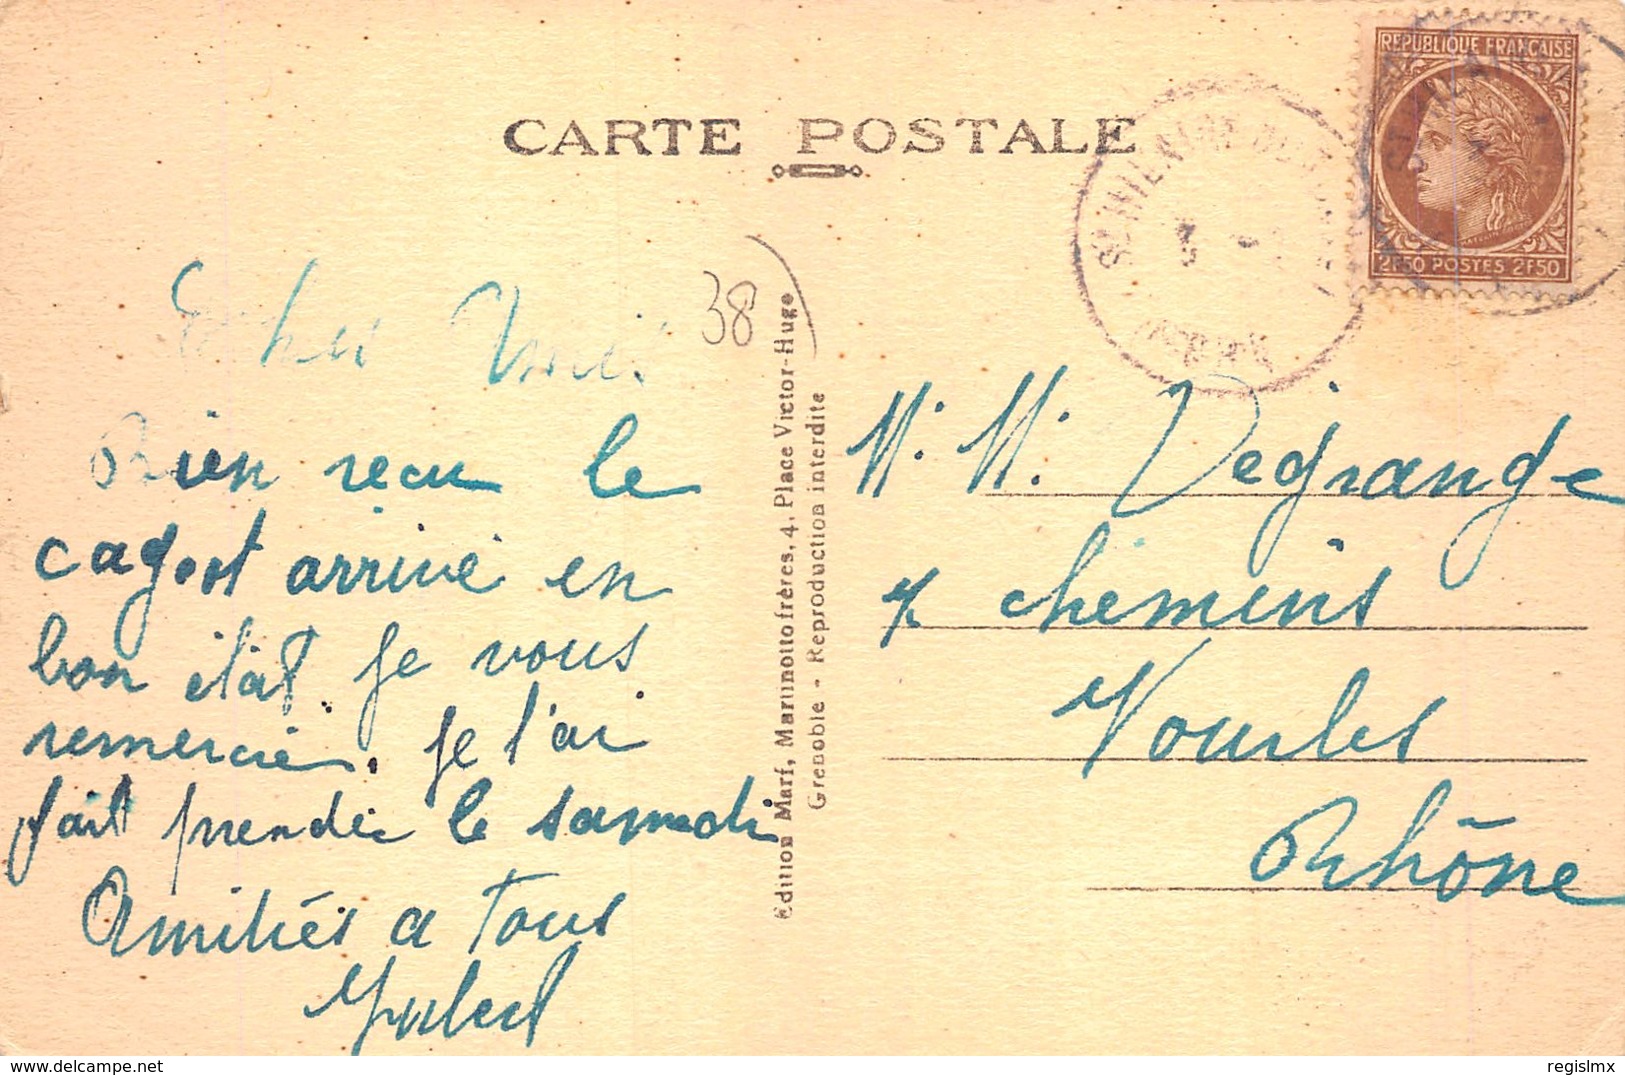 CARTE POSTALE
REPUBLIQUE FRANÇAISE
2F50 POSTES 2F50
ST HILAIRE DU
ISÈRE
38
Chers Amis
Bien reçu le
cageot arrivé en
bon état. Je vous
remercie. Je l'ai
fait prendre le samedi
Amitiés a Tous
Edition Marf, Martinotto frères, 4, Place Victor-Hugo
Grenoble - Reproduction interdite
M. M. Degrange
chemins
Vourles
Rhône
www.delcampe.net
regislmx